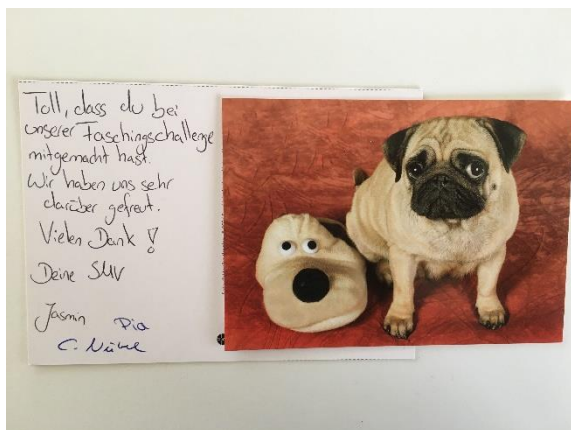 Toll, dass du bei
unserer Faschingschallenge
mitgemacht hast.
Wir haben uns sehr
darüber gefreut.
Vielen Dank !
Deine SMV
Jasmin Pia
C.